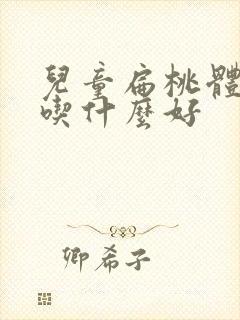 兒童扁桃體
喫什麼好
卿希子